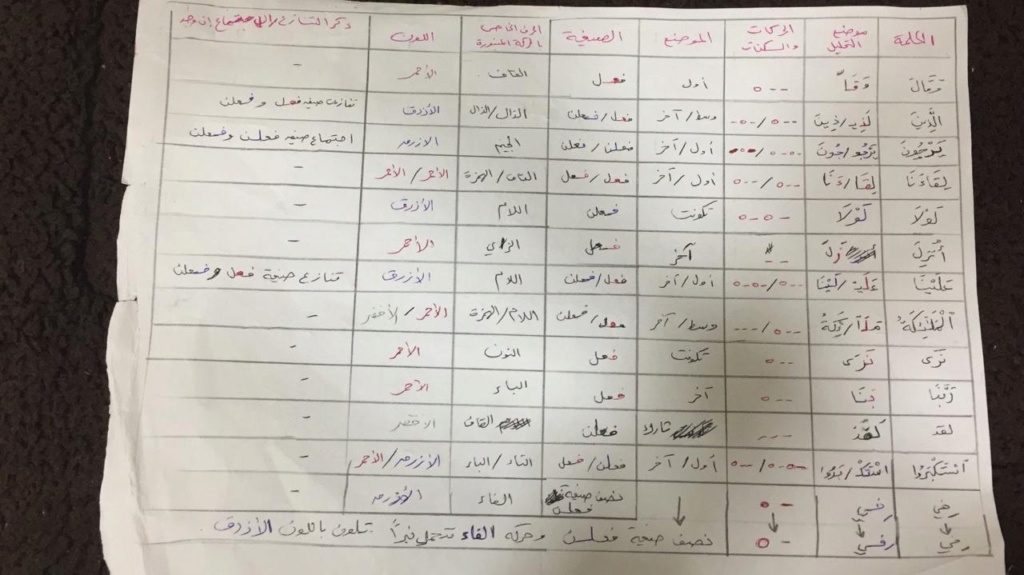 الكلمة موضع التحليل الحركات والسكنات الموضع الصيغة اللون
وَقَالَ وَقَاْ - - ه أول فعل القاف الأحمر -
الَّذِينَ لَذِيـ/ذِينَ وسط/آخر فعل/فعلن الذال/الذال الأزرق تنازع صيغة فعل و فعلن
يَرْجُونَ يَرْجُو/جُونَ أول/آخر فعلن/فعلن الجيم الأزرق اجتماع صيغة فعلن وفعلن
لِقَاءَنَا لِقَا/ءَنَا - - ه/- - ه أول/آخر فعل/فعل القاف/الهمزة الأحمر/الأحمر -
لَوْلَا لَوْلَا - ه - ه تكونت فعلن اللام الأزرق -
أُنْزِلَ زِلَ آخر فعل الزاي الأحمر -
عَلَيْنَا عَلَيـ/لَيْنَا - - ه/- ه - ه أول/آخر فعل/فعلن اللام الأزرق تنازع صيغة فعل و فعلن
الْمَلَائِكَةُ مَلَا/ئِكَةُ - - ه/- - - وسط/آخر فعل/فعلن اللام/الهمزة الأحمر/الأخضر -
نَرَى نَرَى - - ه تكونت فعل النون الأحمر -
رَبَّنَا بَنَا - - ه آخر فعل الباء الأحمر -
لقد لَقَدْ شارك فعلن القاف الأخضر -
اسْتَكْبَرُوا اسْتَكْـ/بَرُوا أول/آخر فعلن/فعل التاء/الباء الأزرق/الأحمر -
في - ه نصف صيغة فعلن الفاء الأزرق -
في - ه نصف صيغة فعلن وحركة الفاء تتحمل نبراً تتلون باللون الأزرق.